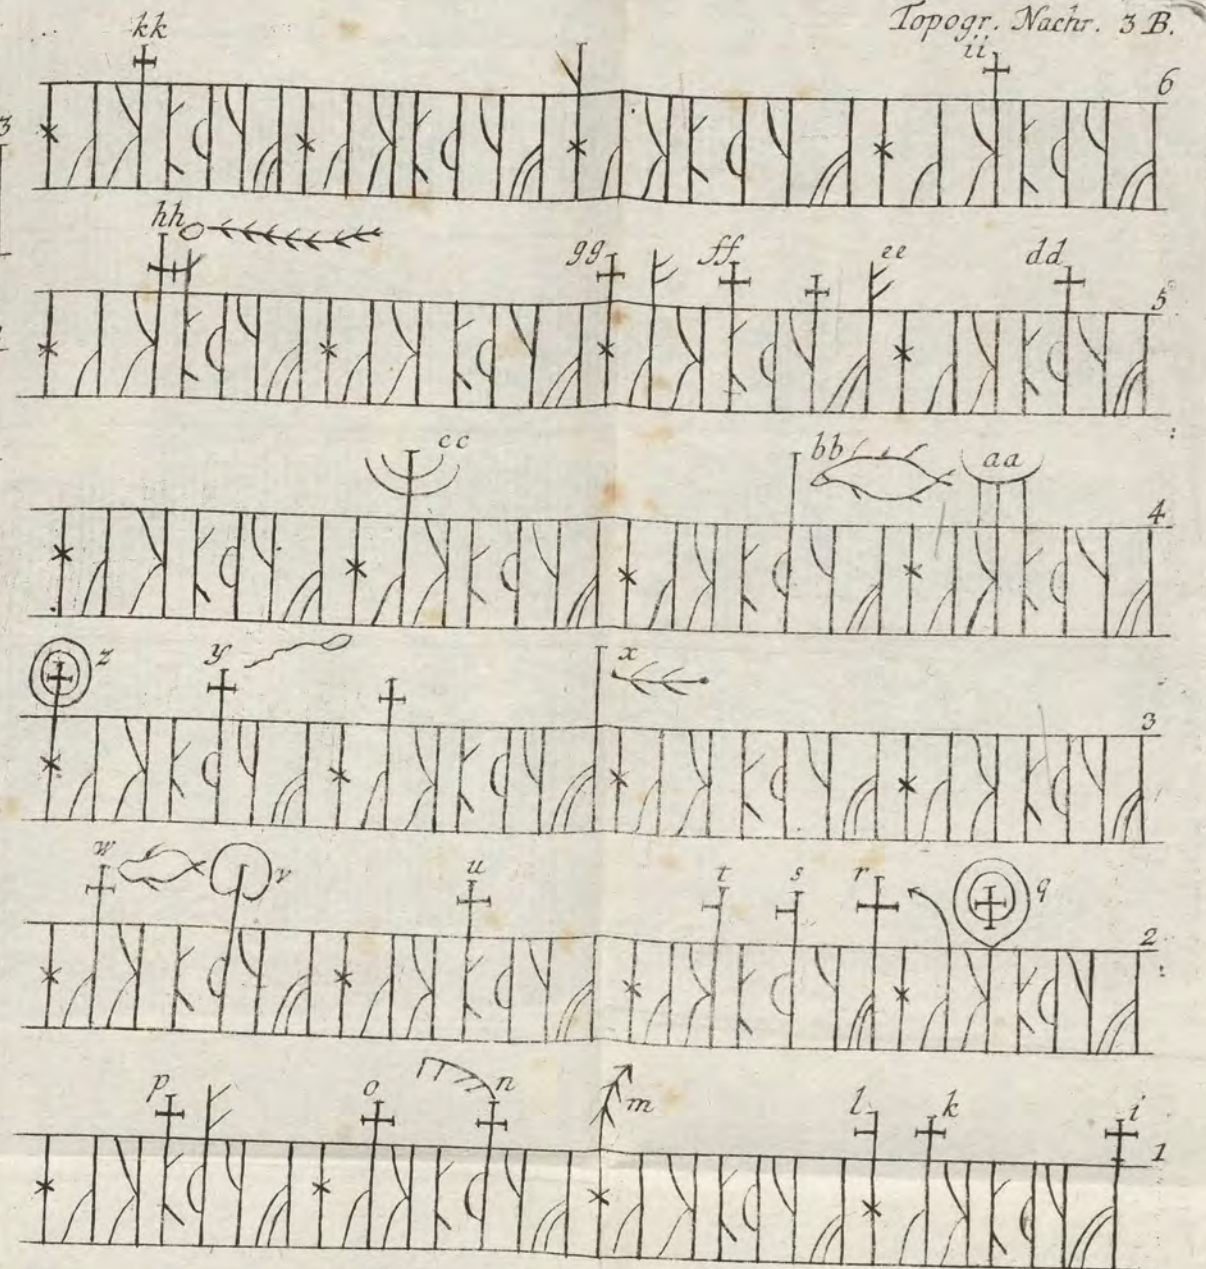 Topogr. Nachr. 3 B.
kk ii 6
3
hh gg ff ee dd 5
cc bb aa 4
z y x 3
w v u t s r q 2
p o n m l k i 1